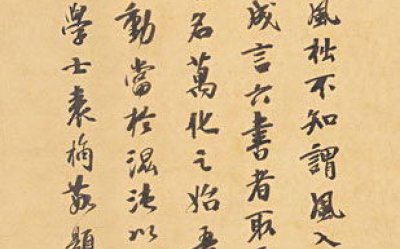 風松不知謂風入
成言六書者取
名萬化之始吾
動當於混沌以
學士袁桷敬題